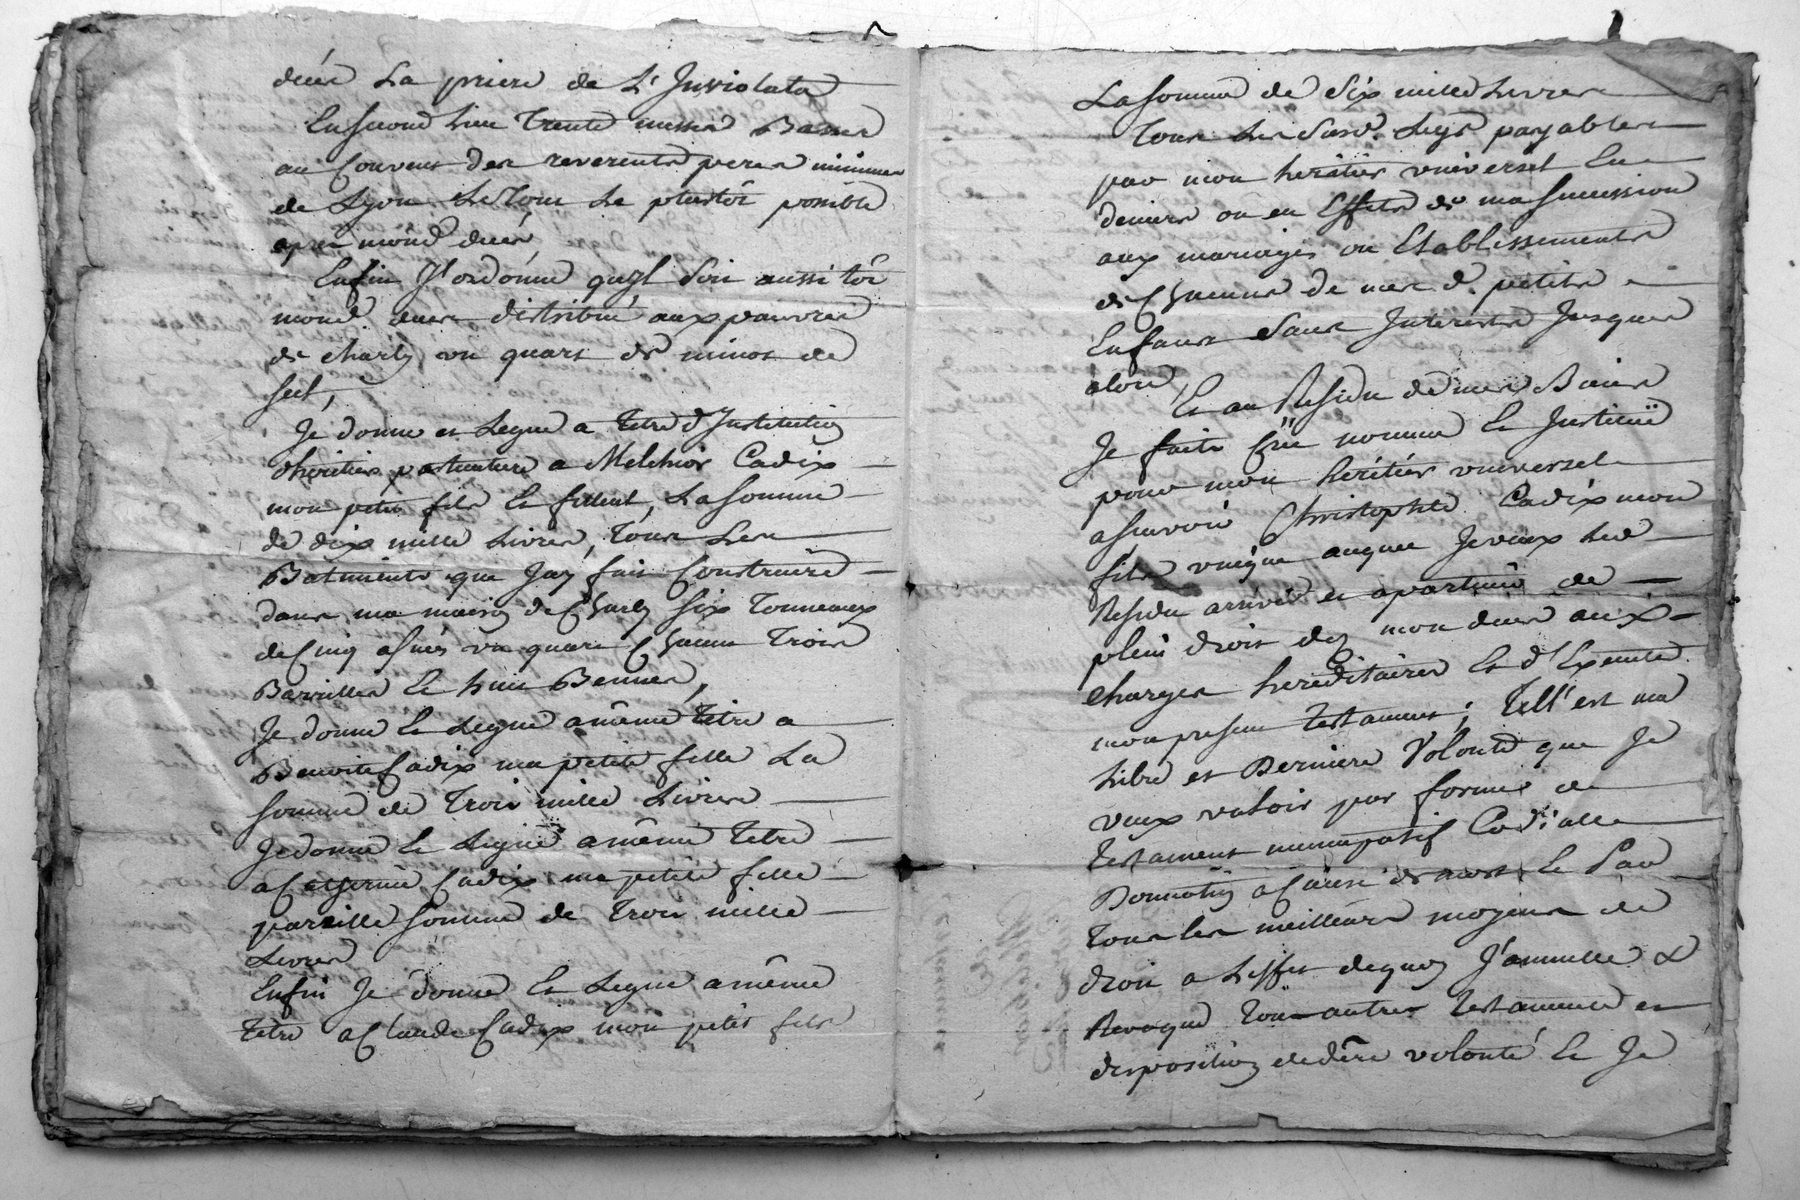 deces La priere de L'Inviolata
En second lieu trente messes Basses
au Couvent des reverents peres minimes
de Lyon Le tout Le plustôt possible
apres mond. deces,
Enfin J'ordonne quyl soit aussi tôt
mond. deces distribué aux pauvres
de charly un quart de minot de
sel,
Je donne et Legue a titre d'Institution
dheritier particuliere a Melchior Cadix
mon petit fils et filleul, La somme
de dix mille Livres, tous Les
Batiments que Jay fait Construire
dans ma maison de Charly six tonneaux
de Cinq asnés un quart Chacun trois
Barrilles et huit Bennes,
Je donne et Legue a même titre a
Benoite Cadix ma petite fille La
somme de trois mille Livres
Je donne et Legue a même titre
a Catherine Cadix ma petite fille
pareille somme de trois mille
Livres
Enfin Je donne et Legue a même
titre a Claude Cadix mon petit fils
La somme de Six mille Livres
tous Les Susd. Legs payables
par mon heritier universel En
deniers ou en Effets de ma succession
aux mariages ou Etablissements
de Chacuns de mes d. petits
Enfants sans Interests Jusques
alors,
Et au Residu de mes Biens
Je faits Créé nomme et Institue
pour mon heritier universel
asscavoir Christophle Cadix mon
fils unique auquel Je veux led.
Residu arriver et apartenir de
plein droit dez mon deces aux
charges hereditaires et d'Executer
mon present testament; Tell'est ma
Libre et Derniere Volonté que Je
veux valoir par forme de
testament nuncupatif Codicille
Donnation a Cause de mort et Par
tous les meilleurs moyens de
droit a L'effet dequoy J'annulle &
Revoque tous autres testaments et
disposition de dére volonté et Je